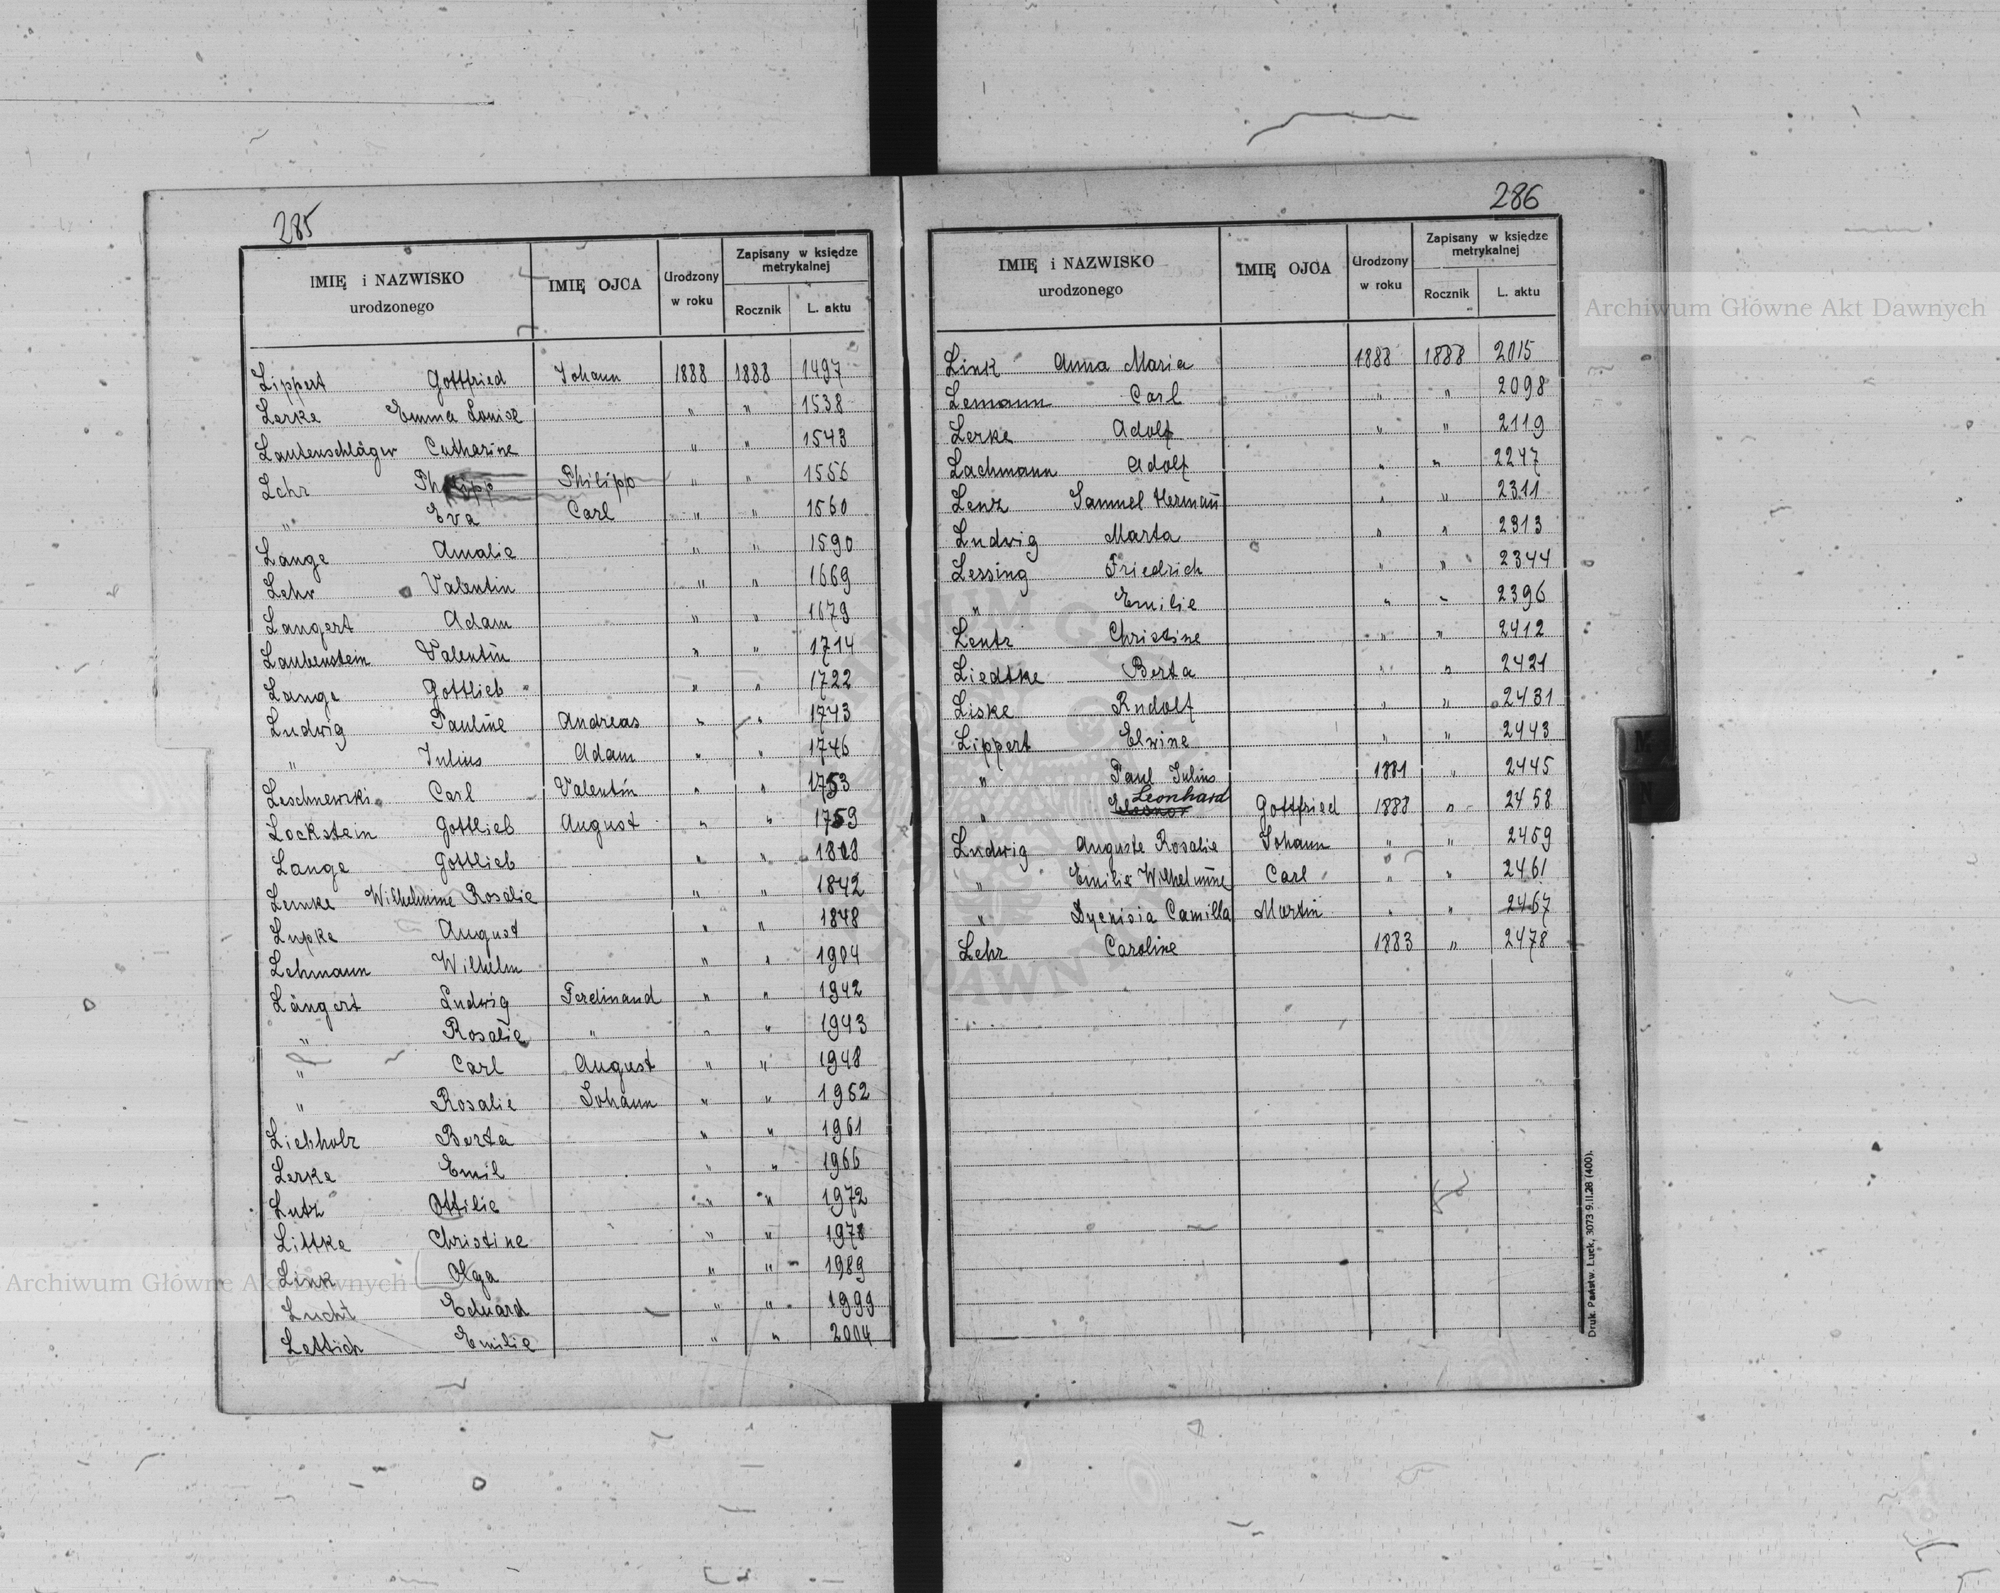 285
IMIĘ i NAZWISKO urodzonego IMIĘ OJCA Urodzony w roku Zapisany w księdze metrykalnej Rocznik L. aktu
Lippert Gottfried Johann 1888 1888 1497
Lerke Emma Louise " " 1538
Lautenschläger Catharine " " 1543
Lehr Philipp Philipp " " 1556
" Eva Carl " " 1560
Lange Amalie " " 1590
Lehr Valentin " " 1669
Langert Adam " " 1679
Laubenstein Valentin " " 1714
Lange Gottlieb " " 1722
Ludwig Pauline Andreas " " 1743
" Julius Adam " " 1746
Leschnewski Carl Valentin " " 1753
Lockstein Gottlieb August " " 1759
Lange Gottlieb " " 1818
Lemke Wilhelmine Rosalie " " 1842
Lupke August " " 1848
Lehmann Wilhelm " " 1904
Längert Ludwig Ferdinand " " 1942
" Rosalie " " " 1943
" Carl August " " 1948
" Rosalie Johann " " 1952
Liebholz Berta " " 1961
Lerke Emil " " 1966
Lutz Ottilie " " 1972
Littke Christine " " 1978
Link Olga " " 1989
Lucht Eduard " " 1999
Lettich Emilie " " 2004
286
IMIĘ i NAZWISKO urodzonego IMIĘ OJCA Urodzony w roku Zapisany w księdze metrykalnej Rocznik L. aktu
Link Anna Maria 1888 1888 2015
Lemann Carl " " 2098
Lerke Adolf " " 2119
Lachmann Adolf " " 2247
Lenz Samuel Hermañ " " 2311
Ludwig Marta " " 2313
Lessing Friedrich " " 2344
" Emilie " " 2396
Lentz Christine " " 2412
Liedtke Berta " " 2421
Liske Rudolf " " 2431
Lippert Elwine " " 2443
" Paul Julius 1881 " 2445
" Eleonor Leonhard Gottfried 1888 " 2458
Ludwig Auguste Rosalie Johann " " 2459
" Emilie Wilhelmine Carl " " 2461
" Dyenisia Camilla Martin " " 2467
Lehr Caroline 1883 " 2478
Druk. Państw. Łuck, 3073 9.II.28 (400).
M
N
Archiwum Główne Akt Dawnych
Archiwum Główne Akt Dawnych